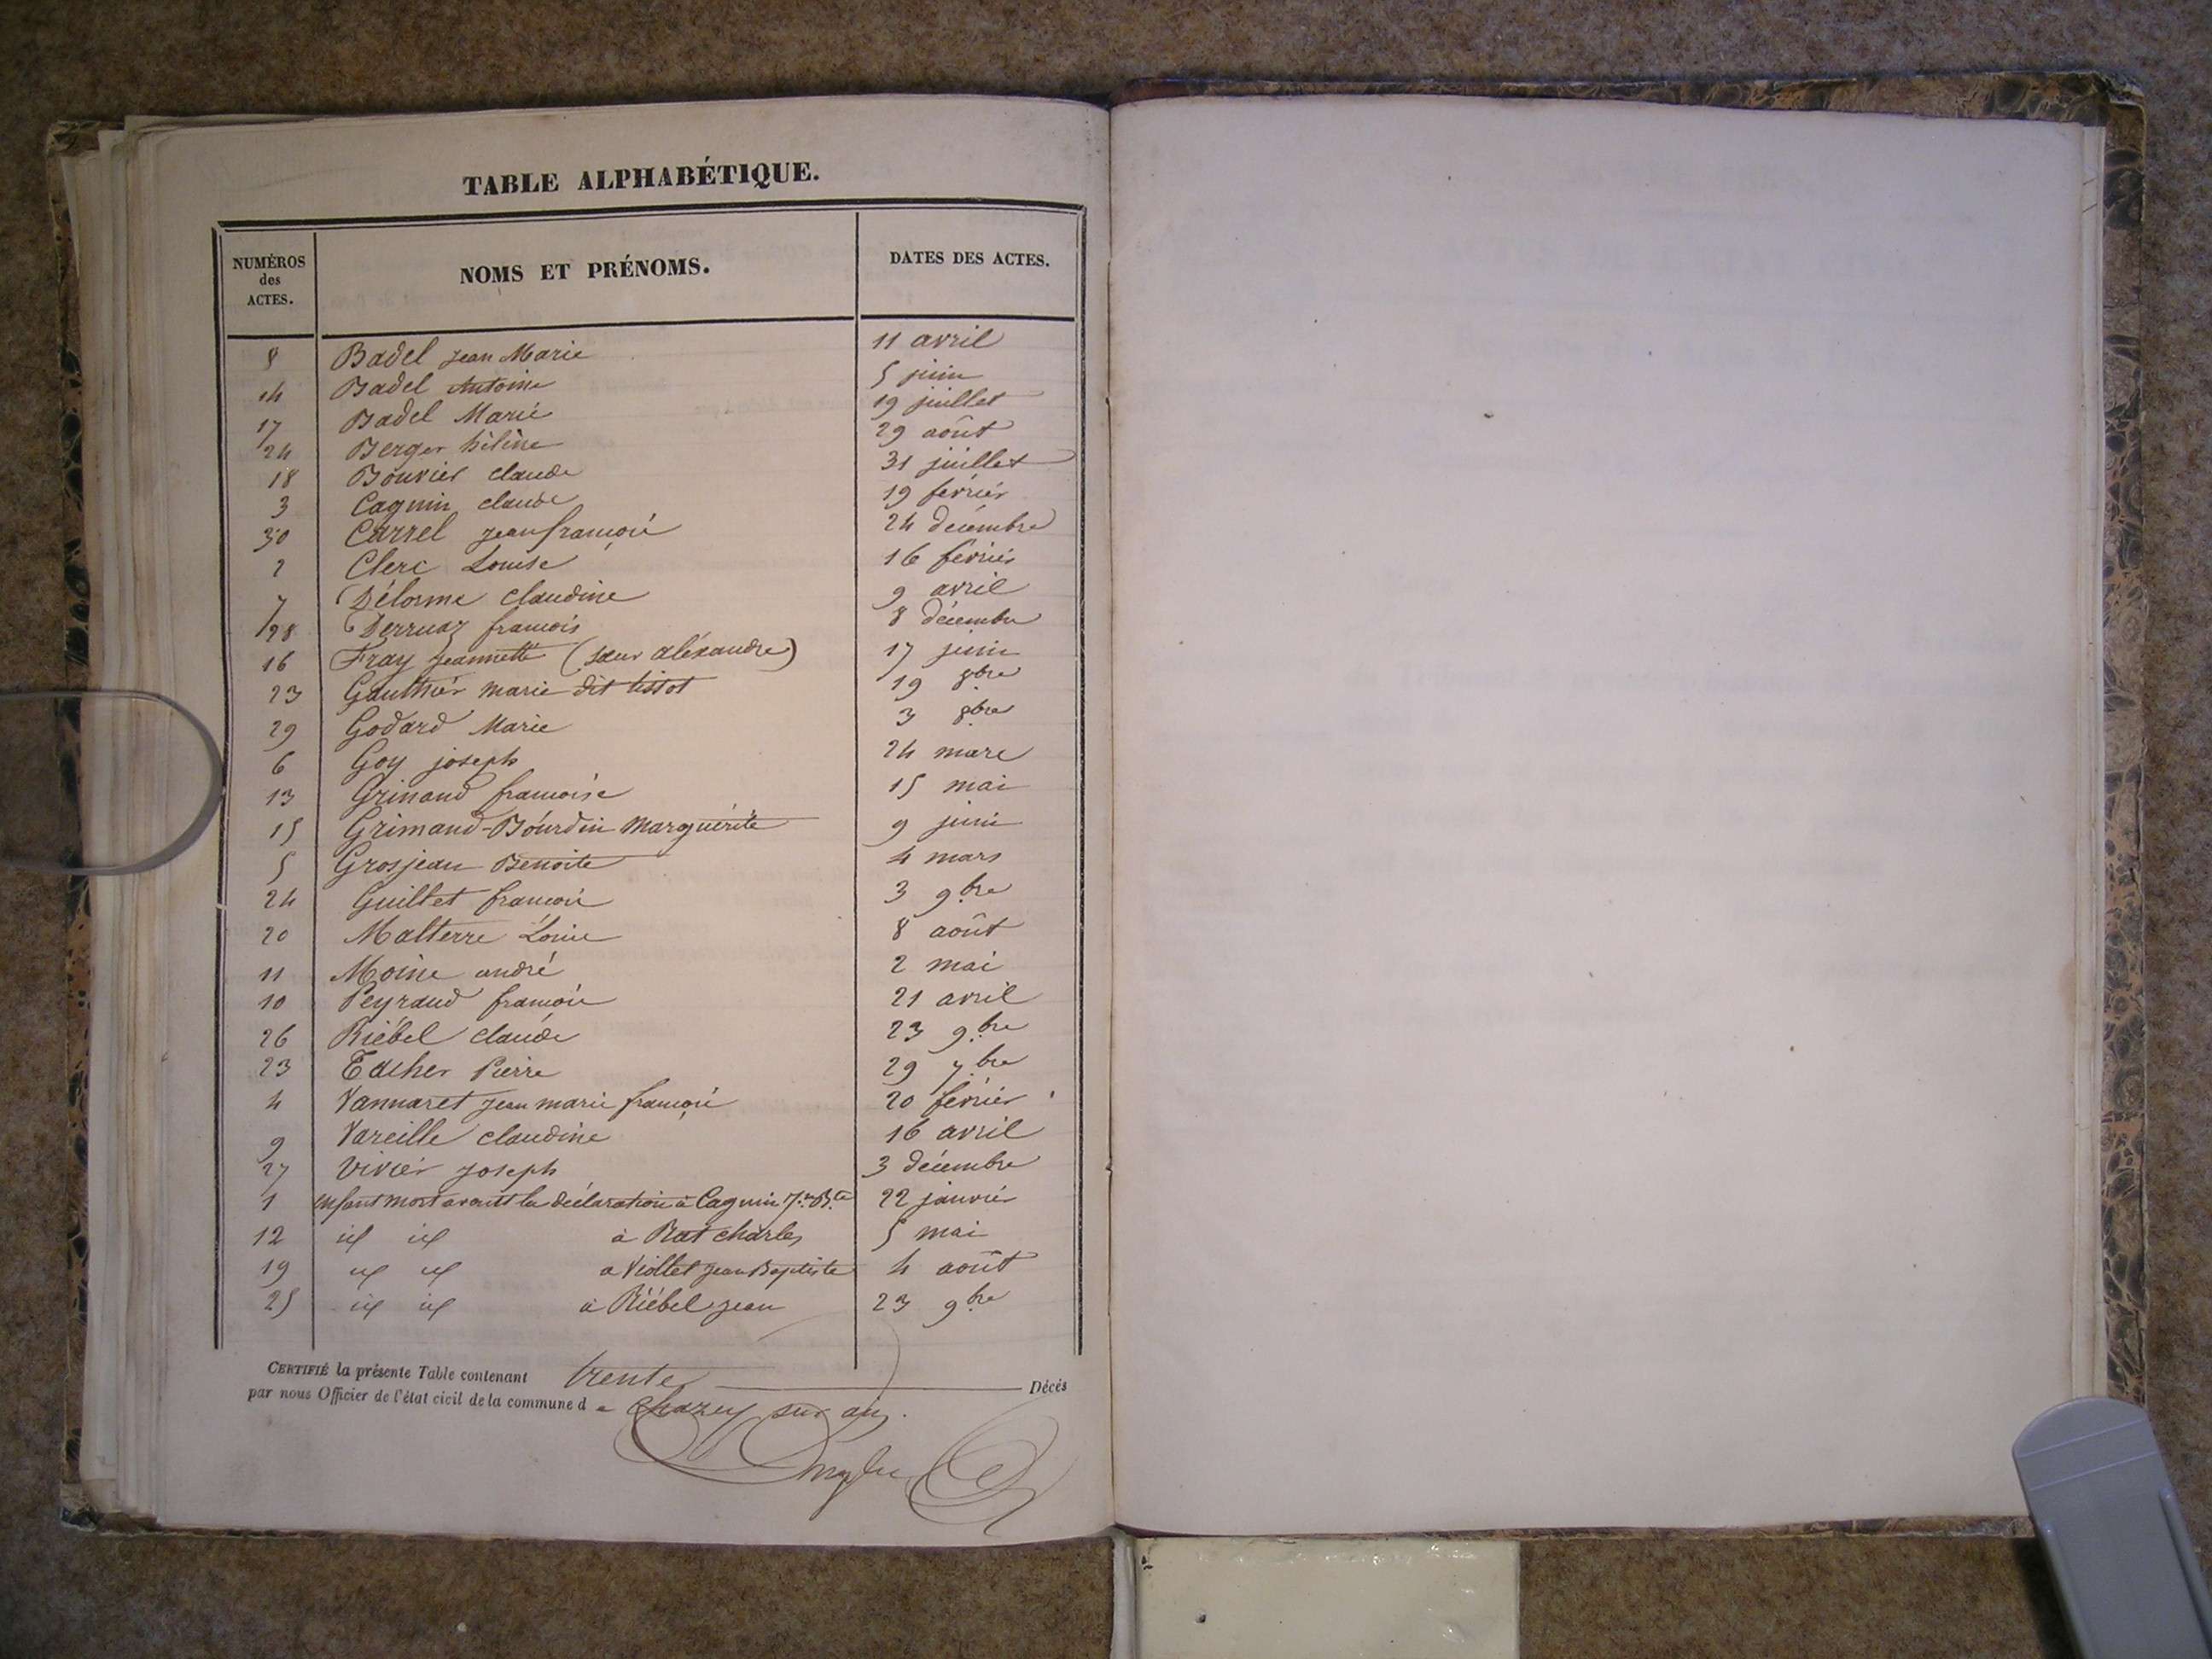 TABLE ALPHABÉTIQUE.
NUMÉROS des ACTES. NOMS ET PRÉNOMS. DATES DES ACTES.
8 Badel jean Marie 11 avril
14 Badel Antoine 5 juin
17 Badel Marie 19 juillet
24 Berger hélène 29 août
18 Bouvier claude 31 juillet
3 Cagnin claude 19 février
30 Carrel jean françois 24 décembre
2 Clerc Louise 16 février
7 Délorme claudine 9 avril
28 Derruaz francois 8 décembre
16 Fray jeannette (sœur aléxandre) 17 juin
23 Gauthiér marie dit tissot 19 8bre
29 Godard Marie 3 8bre
6 Goy joseph 24 mars
13 Grinand francoise 15 mai
15 Grimand-Bourdin Marguérite 9 juin
5 Grosjean Benoite 4 mars
24 Guillet francois 3 9bre
20 Malterre Louise 8 août
11 Moine andré 2 mai
10 Peyraud francois 21 avril
26 Riébel claude 23 9bre
23 Tacher Pierre 29 7bre
4 Vannaret jean marie françois 20 février
9 Vareille claudine 16 avril
27 Viviér joseph 3 décembre
1 enfant mort avant la déclaration à Cagnin Jn Bte 22 janvier
12 id id à Rat charles 5 mai
19 id id a Viollet jean Baptiste 4 août
25 id id à Riébel jean 23 9bre
CERTIFIÉ la présente Table contenant trente Décés
par nous Officier de l'état civil de la commune d e chazey sur ain.